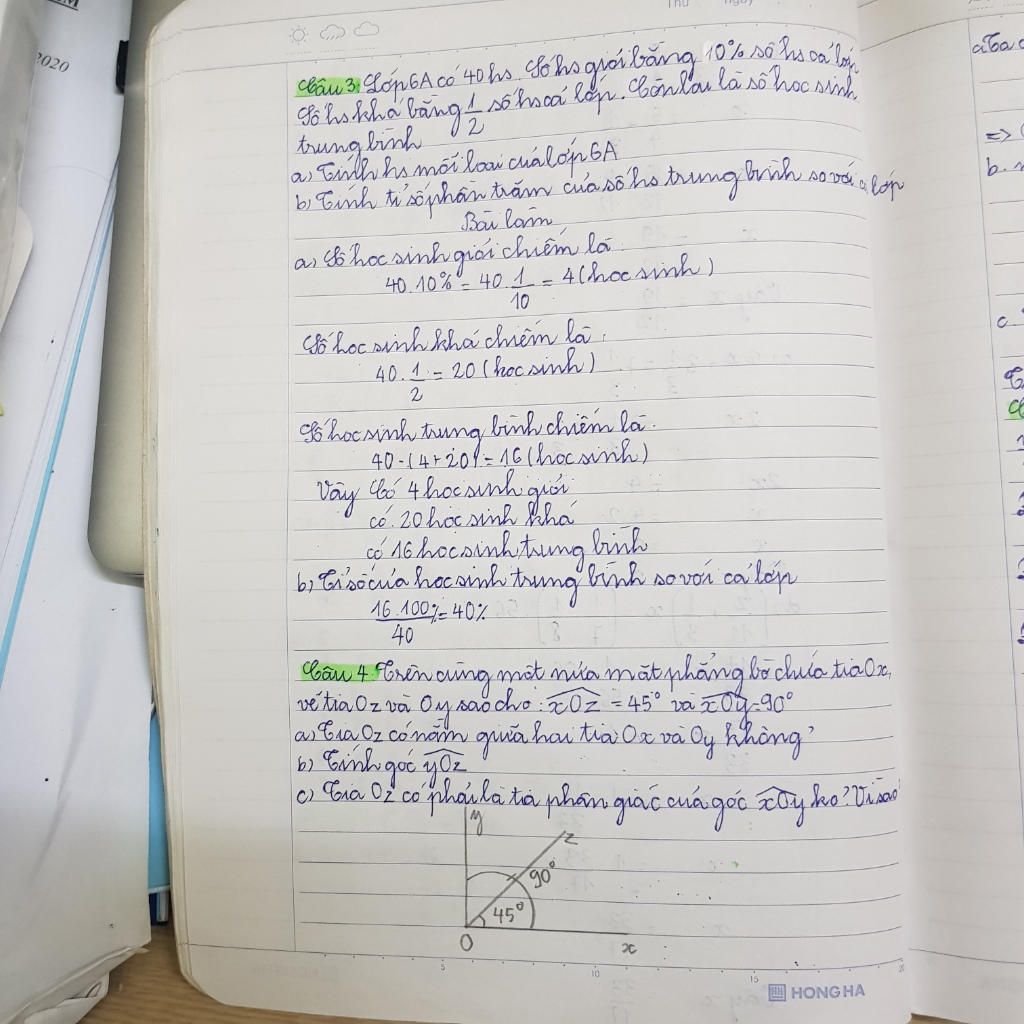 2020
Thứ ngày
Câu 3: Lớp 6A có 40 hs. Số hs giỏi bằng 10% số hs cả lớp
Số hs khá bằng 1/2 số hs cả lớp. Còn lại là số học sinh
trung bình
a, Tính hs mỗi loại của lớp 6A
b, Tính tỉ số phần trăm của số hs trung bình so với cả lớp
Bài làm
a, Số học sinh giỏi chiếm là:
40.10% = 40.1/10 = 4 (học sinh)
Số học sinh khá chiếm là:
40.1/2 = 20 (học sinh)
Số học sinh trung bình chiếm là:
40-(4+20) = 16 (học sinh)
Vậy Có 4 học sinh giỏi
có 20 học sinh khá
có 16 học sinh trung bình
b, Tỉ số của học sinh trung bình so với cả lớp
16.100%/40 = 40%
Câu 4. Trên cùng một nửa mặt phẳng bờ chứa tia Ox,
vẽ tia Oz và Oy sao cho: xOz = 45° và xOy = 90°
a, Tia Oz có nằm giữa hai tia Ox và Oy không?
b, Tính góc yOz
c) Tia Oz có phải là tia phân giác của góc xOy ko? Vì sao
y
z
90°
45°
O
x
5 10 15 20
HONG HA
a,
=>
b.
c.